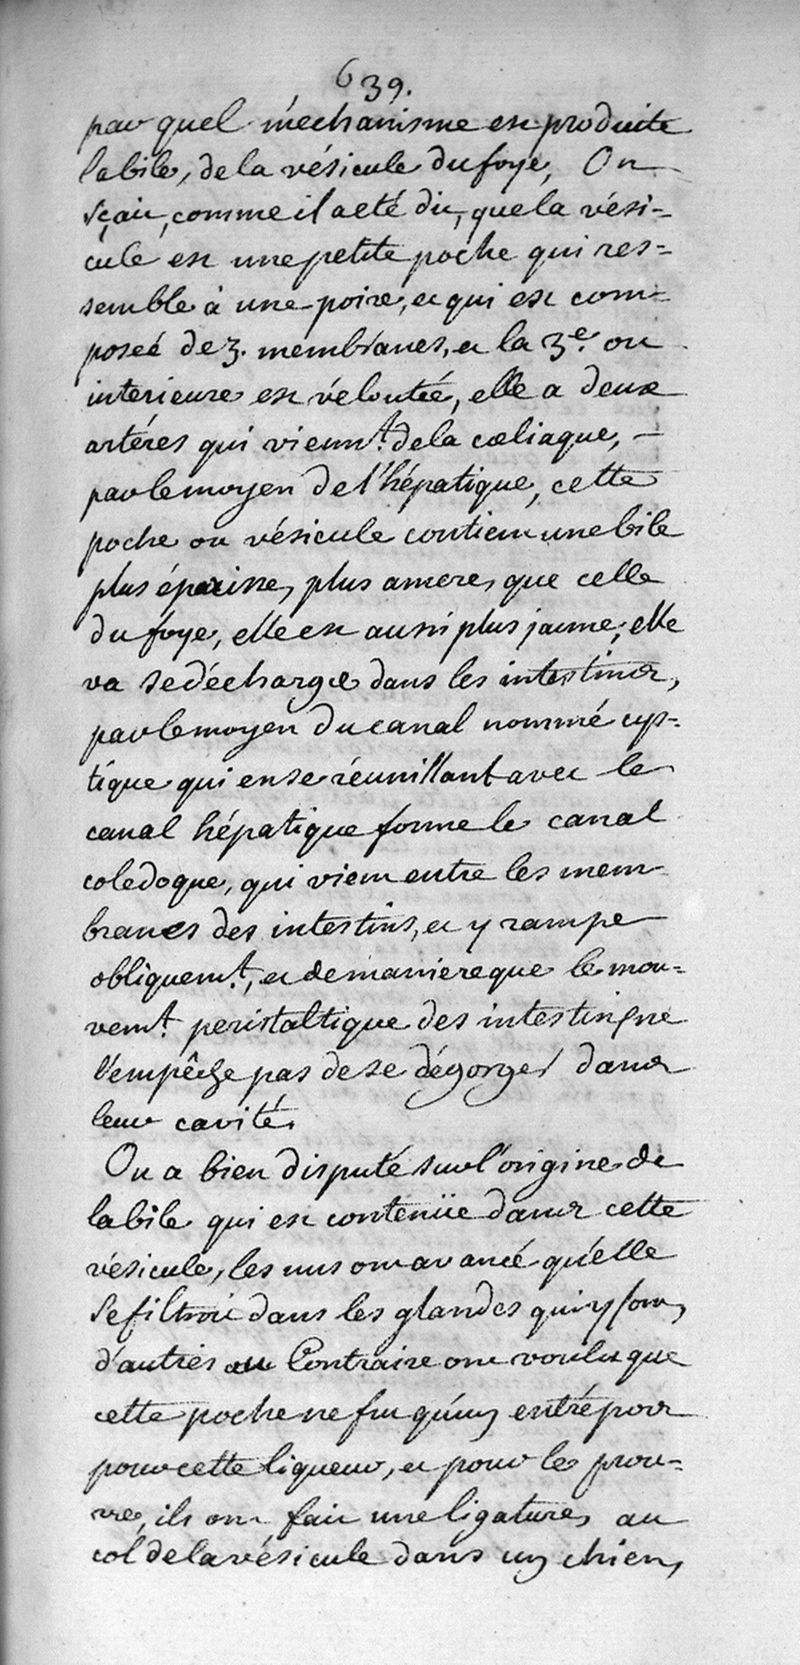 639.
par quel méchanisme est produite
la bile, de la vésicule du foye, On
sçait, comme il a eté dit, que la vési=
cule est une petite poche qui res=
semble à une poire, et qui est com=
poseé de 3. membranes, et la 3e. ou
interieure est véloutée, elle a deux
artéres qui vienn.t de la cœliaque, —
par le moyen de l'hépatique, cette
poche ou vésicule contient une bile
plus épaisse, plus amere, que celle
du foye, elle est aussi plus jaune, elle
va se décharger dans les intestins,
par le moyen du canal nommé cys=
tique qui en se réunissant avec le
canal hépatique forme le canal
coledoque, qui vient entre les mem
branes des intestins, et y rampe
obliquem.t, et de maniere que le mou=
vem.t peristaltique des intestins ne
l'empêche pas de se dégorger dans
leur cavité.
On a bien disputé sur l'origine de
la bile qui est contenüe dans cette
vésicule, les uns ont avancé qu'elle
se filtroit dans les glandes qui y sont,
d'autres au Contraire ont voulu que
cette poche ne fut qu'un entrépot
pour cette liqueur, et pour le prou=
ver, ils ont fait une ligature, au
col de la vésicule dans un chien,